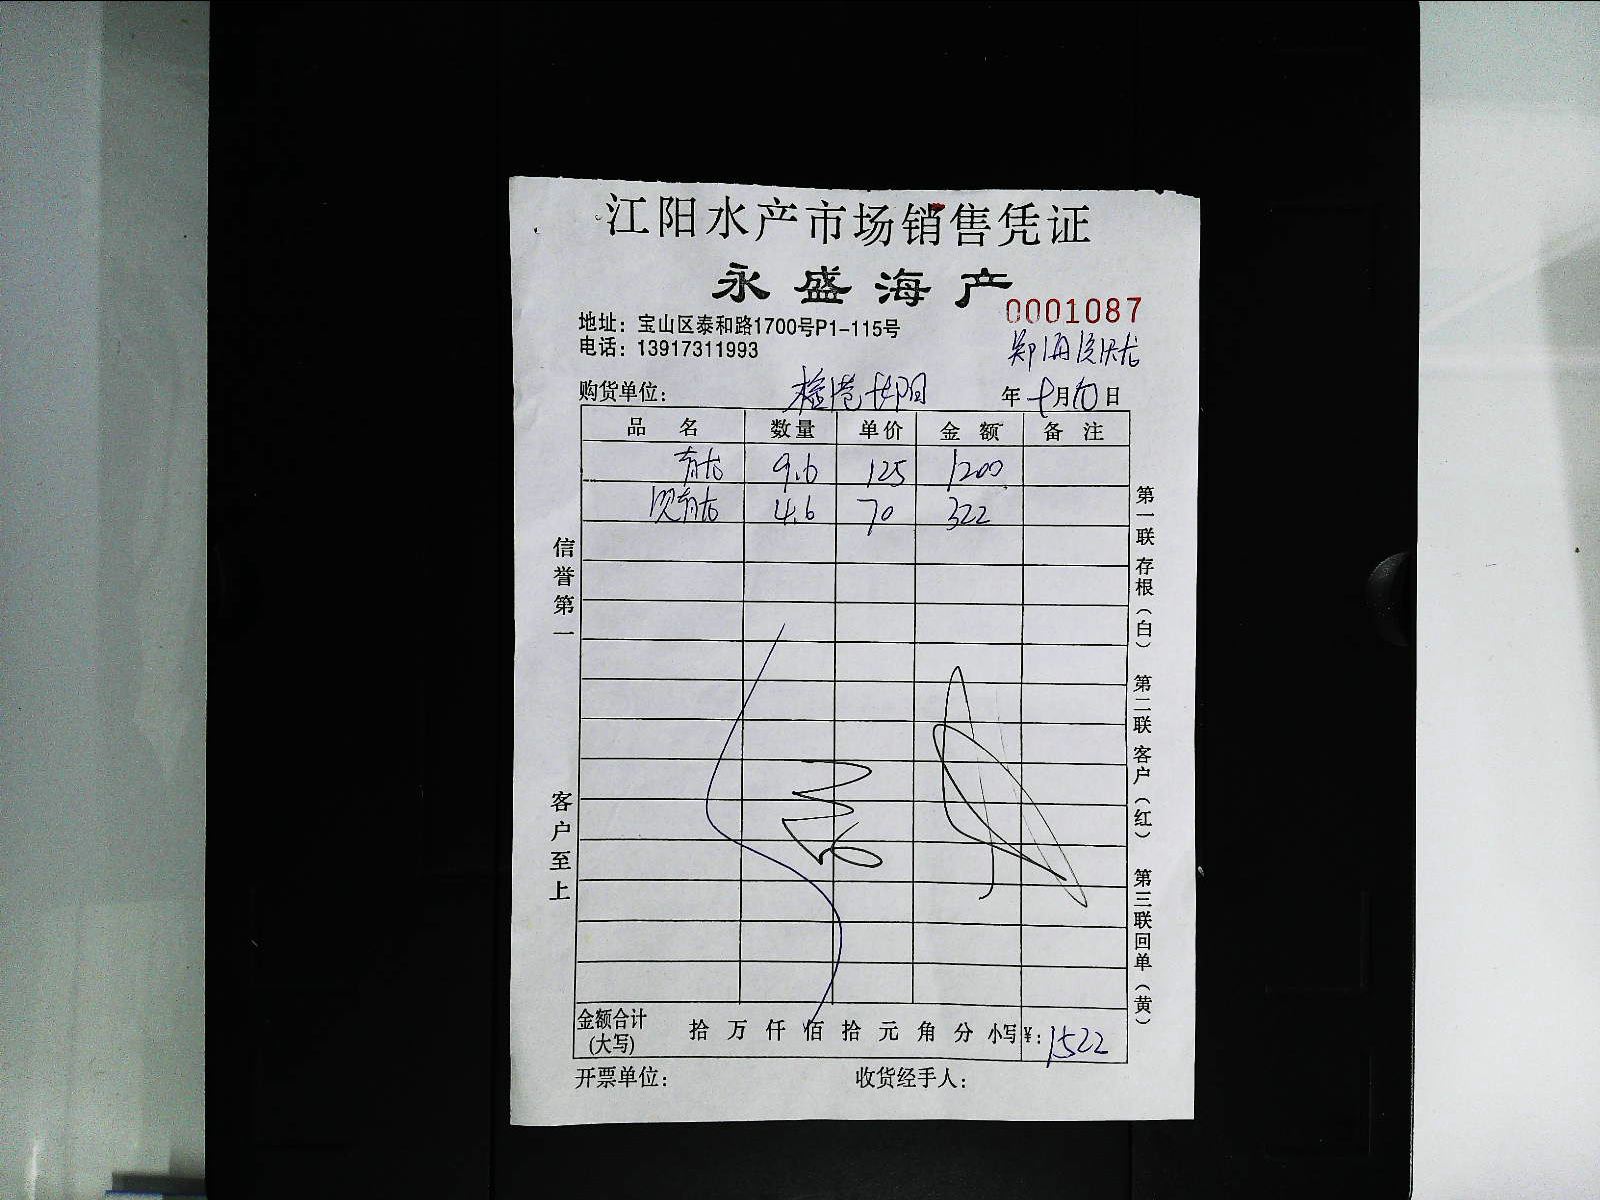 江阳水产市场销售凭证
永盛海产
0001087
地址：宝山区泰和路1700号P1-115号
电话：13917311993
购货单位： 年十月10日
品名 数量 单价 金额 备注
青龙 9.6 125 1200
死青龙 4.6 70 322
信誉第一 客户至上
第一联存根（白） 第二联客户（红） 第三联回单（黄）
金额合计(大写) 拾 万 仟 佰 拾 元 角 分 小写¥：1522
开票单位： 收货经手人：